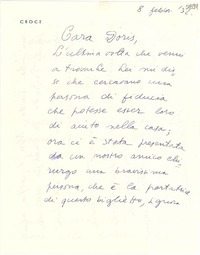 CROCI
8 febbr.
Cara Doris,
L'ultima volta che venni
a trovarla Lei mi dis
se che cercavano una
persona di fiducia
che potesse esser loro
di aiuto nella casa;
ora ci è stata presentata
da un nostro amico chi
rurgo una bravissima
persona, che è la portatrice
di questo biglietto, Signora